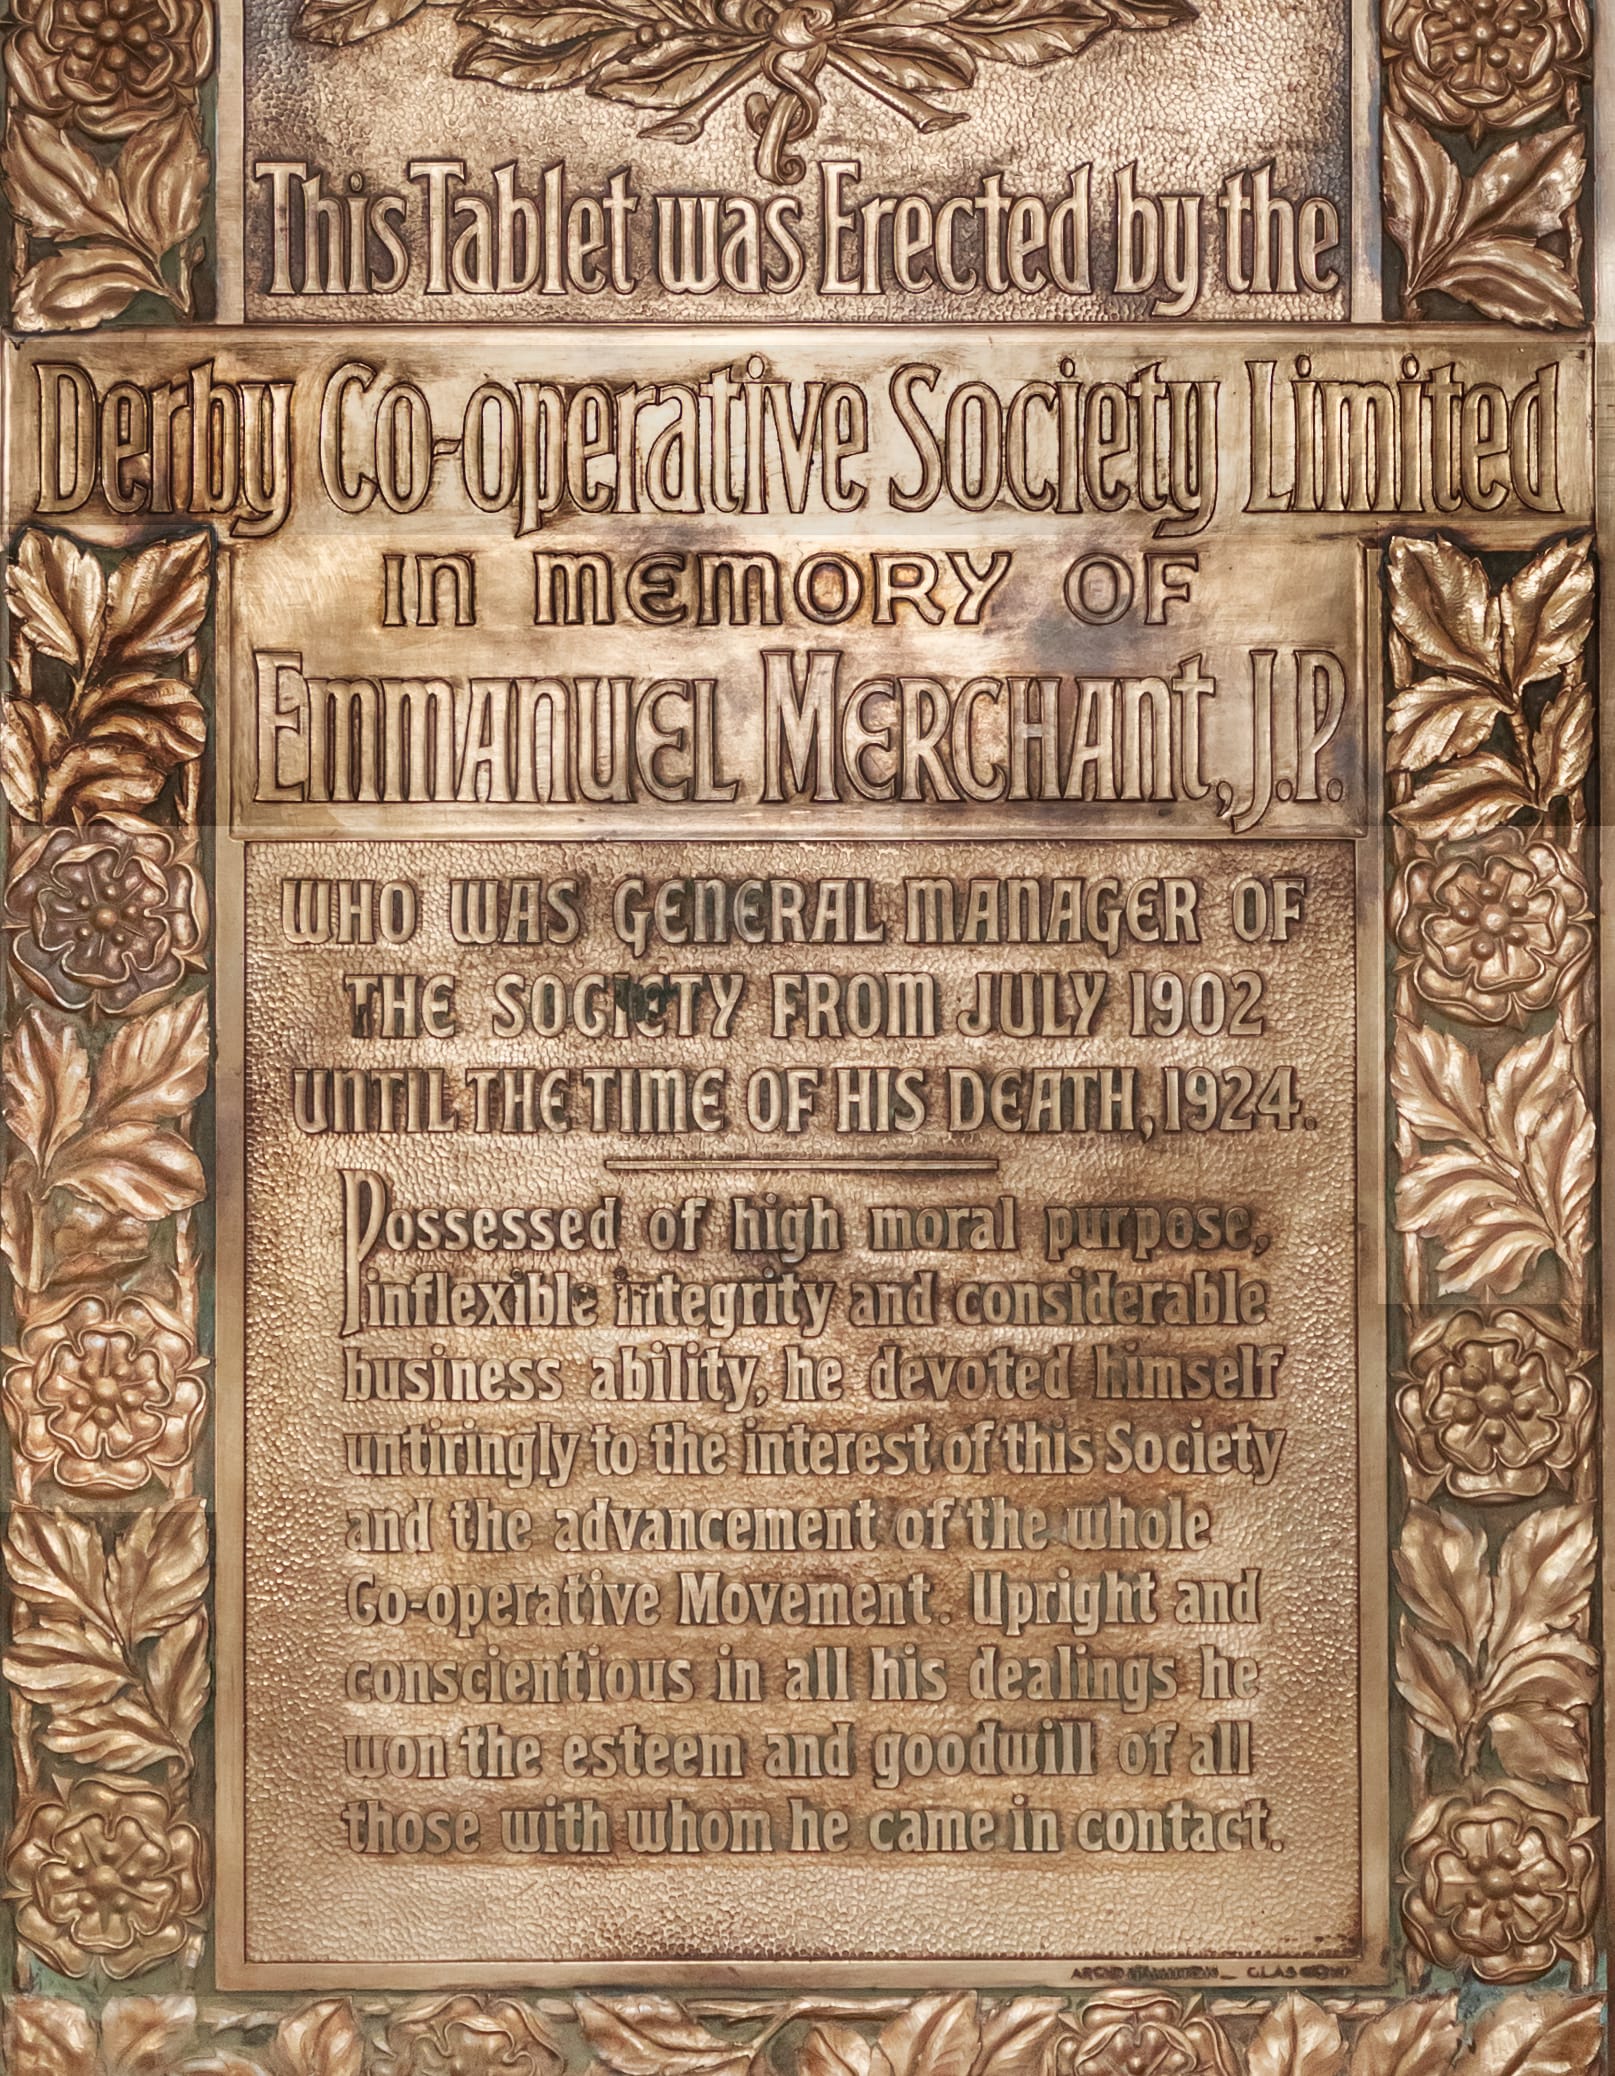 This Tablet was Erected by the
Derby Co-operative Society Limited
in memory of
Emmanuel Merchant, J.P.
WHO WAS GENERAL MANAGER OF
THE SOCIETY FROM JULY 1902
UNTIL THE TIME OF HIS DEATH, 1924.
Possessed of high moral purpose,
inflexible integrity and considerable
business ability, he devoted himself
untiringly to the interest of this Society
and the advancement of the whole
Co-operative Movement. Upright and
conscientious in all his dealings he
won the esteem and goodwill of all
those with whom he came in contact.
GLASGOW